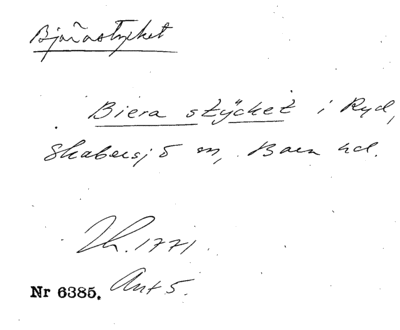 Bjärastycket
Biera stÿcket i Ryd,
Skabersjö sn, Bara hd.
Lh. 1771.
Ant 5.
Nr 6385.